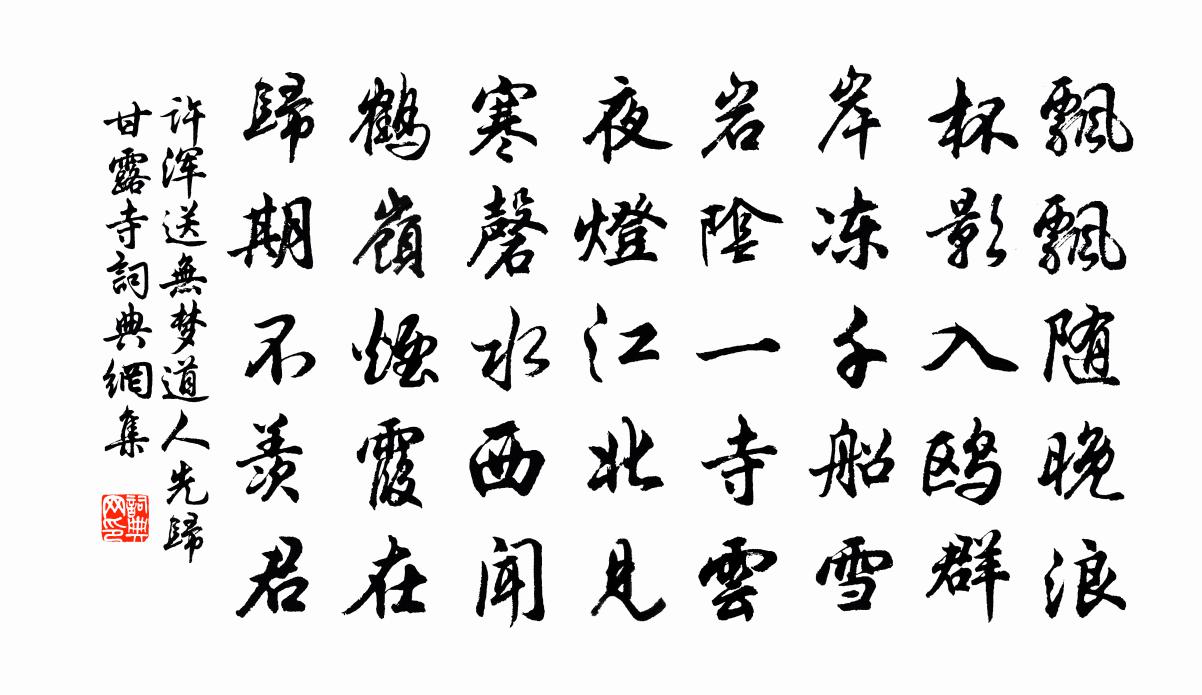 飄飄随晚浪
杯影入鸥群
岸冻千船雪
岩陰一寺雲
夜燈江北見
寒磬水西聞
鶴嶺煙霞在
歸期不羨君
许浑送無梦道人先歸
甘露寺詞典網集
詞典网印